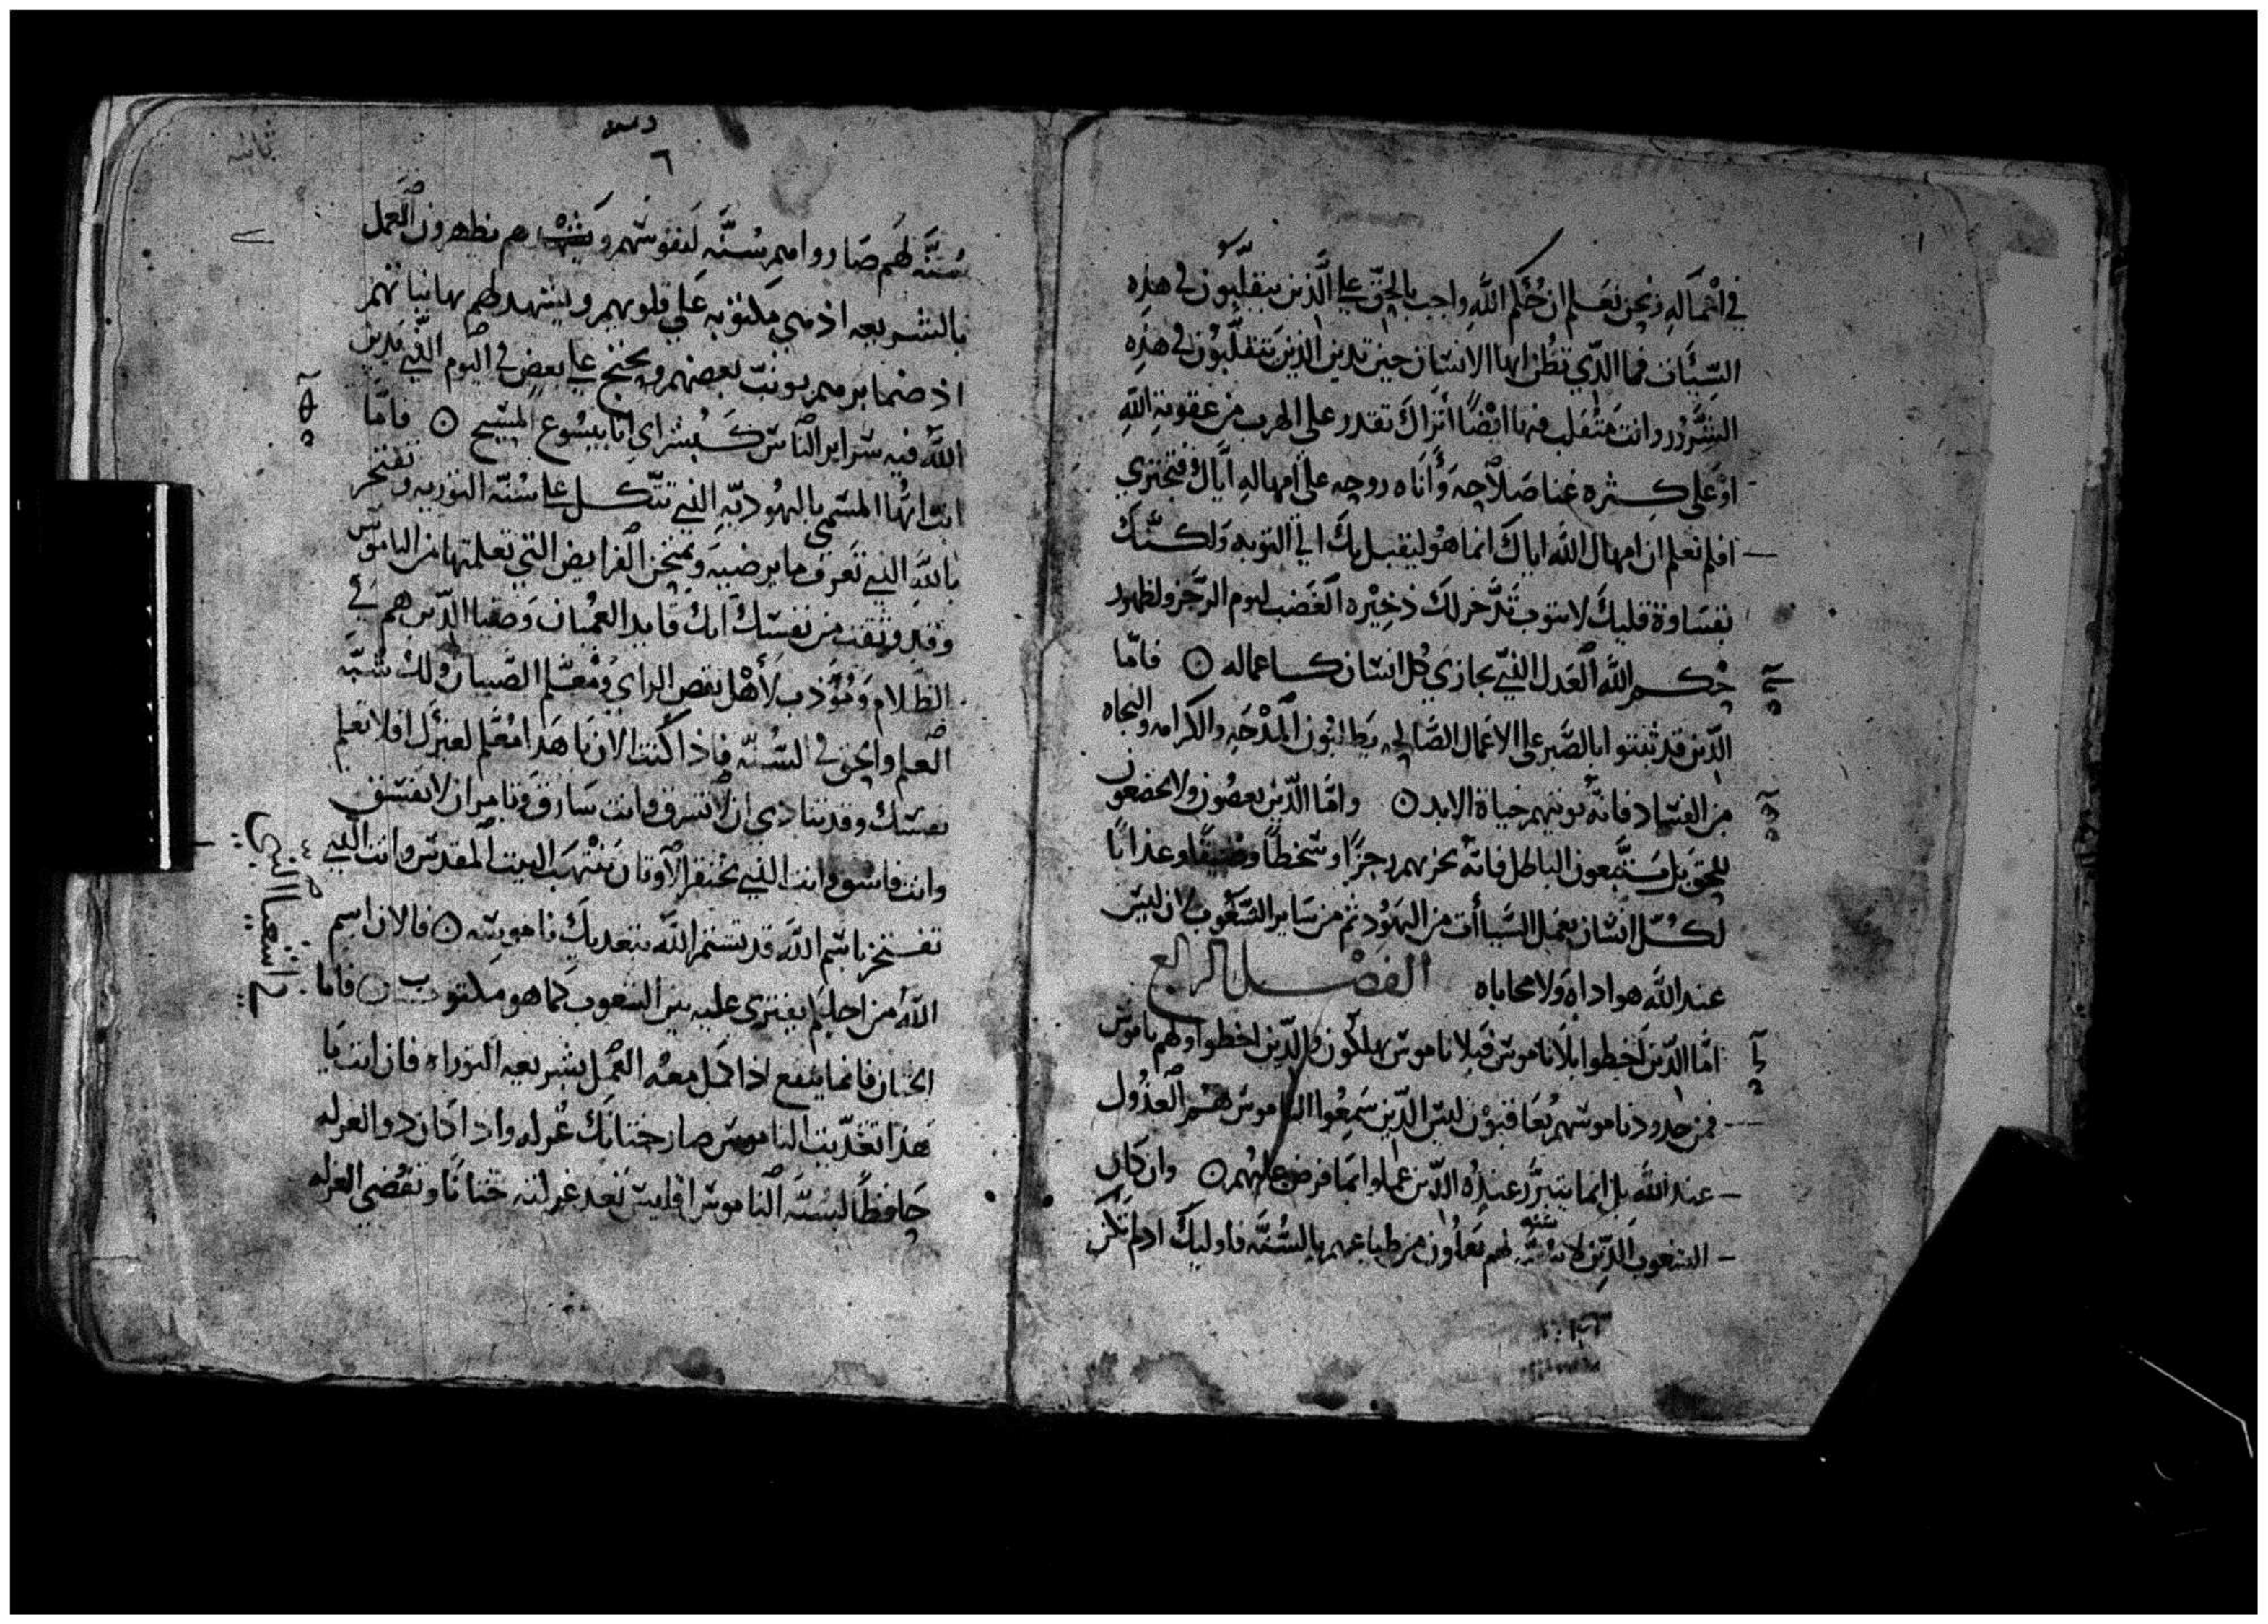 في اعماله ونحن نعلم ان حُكم الله واجب بالحق علي الَّذين يتقلَّبُون في هذِه
السِّيئات فما الذّي تظُن ايها الانسان حين تدين الذين يتقلَّبُون في هذِه
الشُّرُور وانت مُتقلب فيها ايضًا اتراك تقدر على الهرب من عقوبة اللَّهِ
اوْ على كثره غنا صلاحه وَأناه روحه على امهالهِ ايَّاك فتجتري
افلم تعلم ان امهال اللّه اياك انما هو ليقبل بك الي التوبه ولكنَّك
بقساوة قلبك لا تتوب تدَّخر لك ذخِيْره الغضب ليوم الرّجز ولظهور
حُكم اللَّه العدل الذي يجازي كُل انسان كاعماله ۞ فامّا
الذّين قد ثبتوا بالصَّبر على الاعمال الصَّالحه يَطلبُون المِدْحَه والكرامه والنجاه
من الفساد فانّه يوتيهم حياة الابد ۞ وامَّا الذّين يعصُون ولا يخضعون
للحق بل يتّبعون الباطل فانّه يجزيهم رجزًا وسَخطًا وضيقًا وعذابًا
لكُلّ انسَان يعمل السَّيأات من اليهُود ثم من سَاير الشّعُوب لان ليس
عند اللَّه هواداه ولا محاباه الفصْل الرابع
امَّا الذّين اخطوا بلَا ناموس فبلا ناموس يهلكون والذّين اخطوا ولهم ناموس
فمن حدود ناموسهم يُعَاقبوُن ليس الذّين سَمِعُوا الناموس هُم العدُول
عند اللَّه بل انما يتبرَّر عندُه الذّين عملوا بما فرض عليهُم ۞ وان كان
الشعوب الذّين لا سُنَّه لهم يعملُون من طباعهم بالسُّنَّه فاوليك اذ لم تكن
ثانيه
٦
سُنَّه لهَم صَاروا هم سُنَّه لنفوسَهم و هم يظهرون العمل
بالشريعه اذ هي مكتوبه عَلي قلوبهم ويشهد لهم بها نياتهم
اذ ضمايرهم يونّب بعضهم ويحتج علي بعض في اليوم الذّي يدين
اللَّه فيه سراير الناس كبُشراي انا بيسُوع المسيح ۞ فامَّا
انت ايُّها المسمي باليهُوديّهِ الذي تتَّكل علي سُنَّه التوريه وتفتخر
باللَّهِ الذي تعرف ما يرضيه وتمتحن الفرايض التي تعلمتها من الناموس
وقد وثقت من نفسك انك قايد العُميان وَضيا الذّين هم في
الظلام وَمُؤدب لأهْل نقص الراي وَمُعلّم الصّبيان ولك شُبّه
العلم والحق في السُّنه فاذا كنت الان يا هَذا مُعَلّم لغيرك افلا تعلم
نفسك وقد تنادي ان لا تسرق وانت سَارق وتامر ان لا يفسق
وانت فاسُق وانت الذي تحتقر الاوثان تنْتهَب البيت المقدس وانت الذي
تفتخر باسم اللَّه قد تشتم اللَّه بتعديك ناموسِه ۞ فالان اسم
اللَّه من اجلكم يفترى عليه بين الشعوب كما هو مكتوب ۞ فاما
الختان فانما ينفع اذا كمل معهُ العمل بشريعه التوراه فان انت يا
هَذا تعدّيت الناموس صار ختانك غُرله واذا كان ذو الغرله
حَافظًا لسُنَّه الناموس افليس تعد غرلته ختانًا وتقضي الغرله
اشعيا النبي